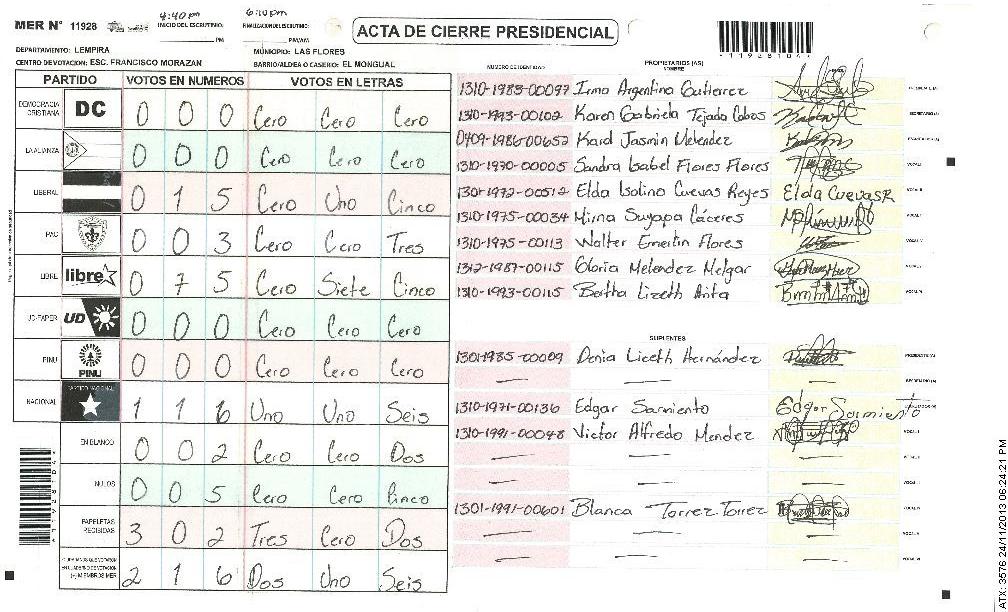 MER N° 11928
4:40 pm
INICIO DEL ESCRUTINIO: PM
6:10 pm
FINALIZACION DEL ESCRUTINIO: PM
ACTA DE CIERRE PRESIDENCIAL
DEPARTAMENTO: LEMPIRA
MUNICIPIO: LAS FLORES
CENTRO DE VOTACION: ESC. FRANCISCO MORAZAN
BARRIO/ALDEA O CASERIO: EL MONGUAL
PARTIDO VOTOS EN NUMEROS VOTOS EN LETRAS
DEMOCRACIA CRISTIANA DC 0 0 0 Cero Cero Cero
LA ALIANZA 0 0 0 Cero Cero Cero
LIBERAL 0 1 5 Cero Uno Cinco
PAC 0 0 3 Cero Cero Tres
LIBRE libre 0 7 5 Cero Siete Cinco
UD-FAPER UD 0 0 0 Cero Cero Cero
PINU PINU 0 0 0 Cero Cero Cero
NACIONAL PARTIDO NACIONAL 1 1 6 Uno Uno Seis
EN BLANCO 0 0 2 Cero Cero Dos
NULOS 0 0 5 Cero Cero Cinco
PAPELETAS RECIBIDAS 3 0 2 Tres Cero Dos
2 1 6 Dos Uno Seis
NUMERO DE IDENTIDAD PROPIETARIOS (AS) NOMBRE
1310-1983-00097 Irma Argentina Gutierrez
1310-1993-00102 Karen Gabriela Tejada Cobos
0409-1986-00652 Karol Jasmin Melendez
1310-1970-00005 Sandra Isabel Flores Flores
1301-1972-00512 Elda Isolina Cuevas Reyes Elda Cuevas R
1310-1975-00034 Mirna Suyapa Cáceres
1310-1975-00113 Walter Emerlin Flores
1312-1987-00115 Gloria Melendez Melgar
1310-1993-00115 Bertha Lizeth Anta
SUPLENTES
1301-1985-00009 Denia Liceth Hernández
1310-1971-00136 Edgar Sarmiento Edgar Sarmiento
1310-1991-00048 Victor Alfredo Mendez
1301-1991-00601 Blanca Torrez Torrez
ATX: 3576 24/11/2013 06:24:21 PM